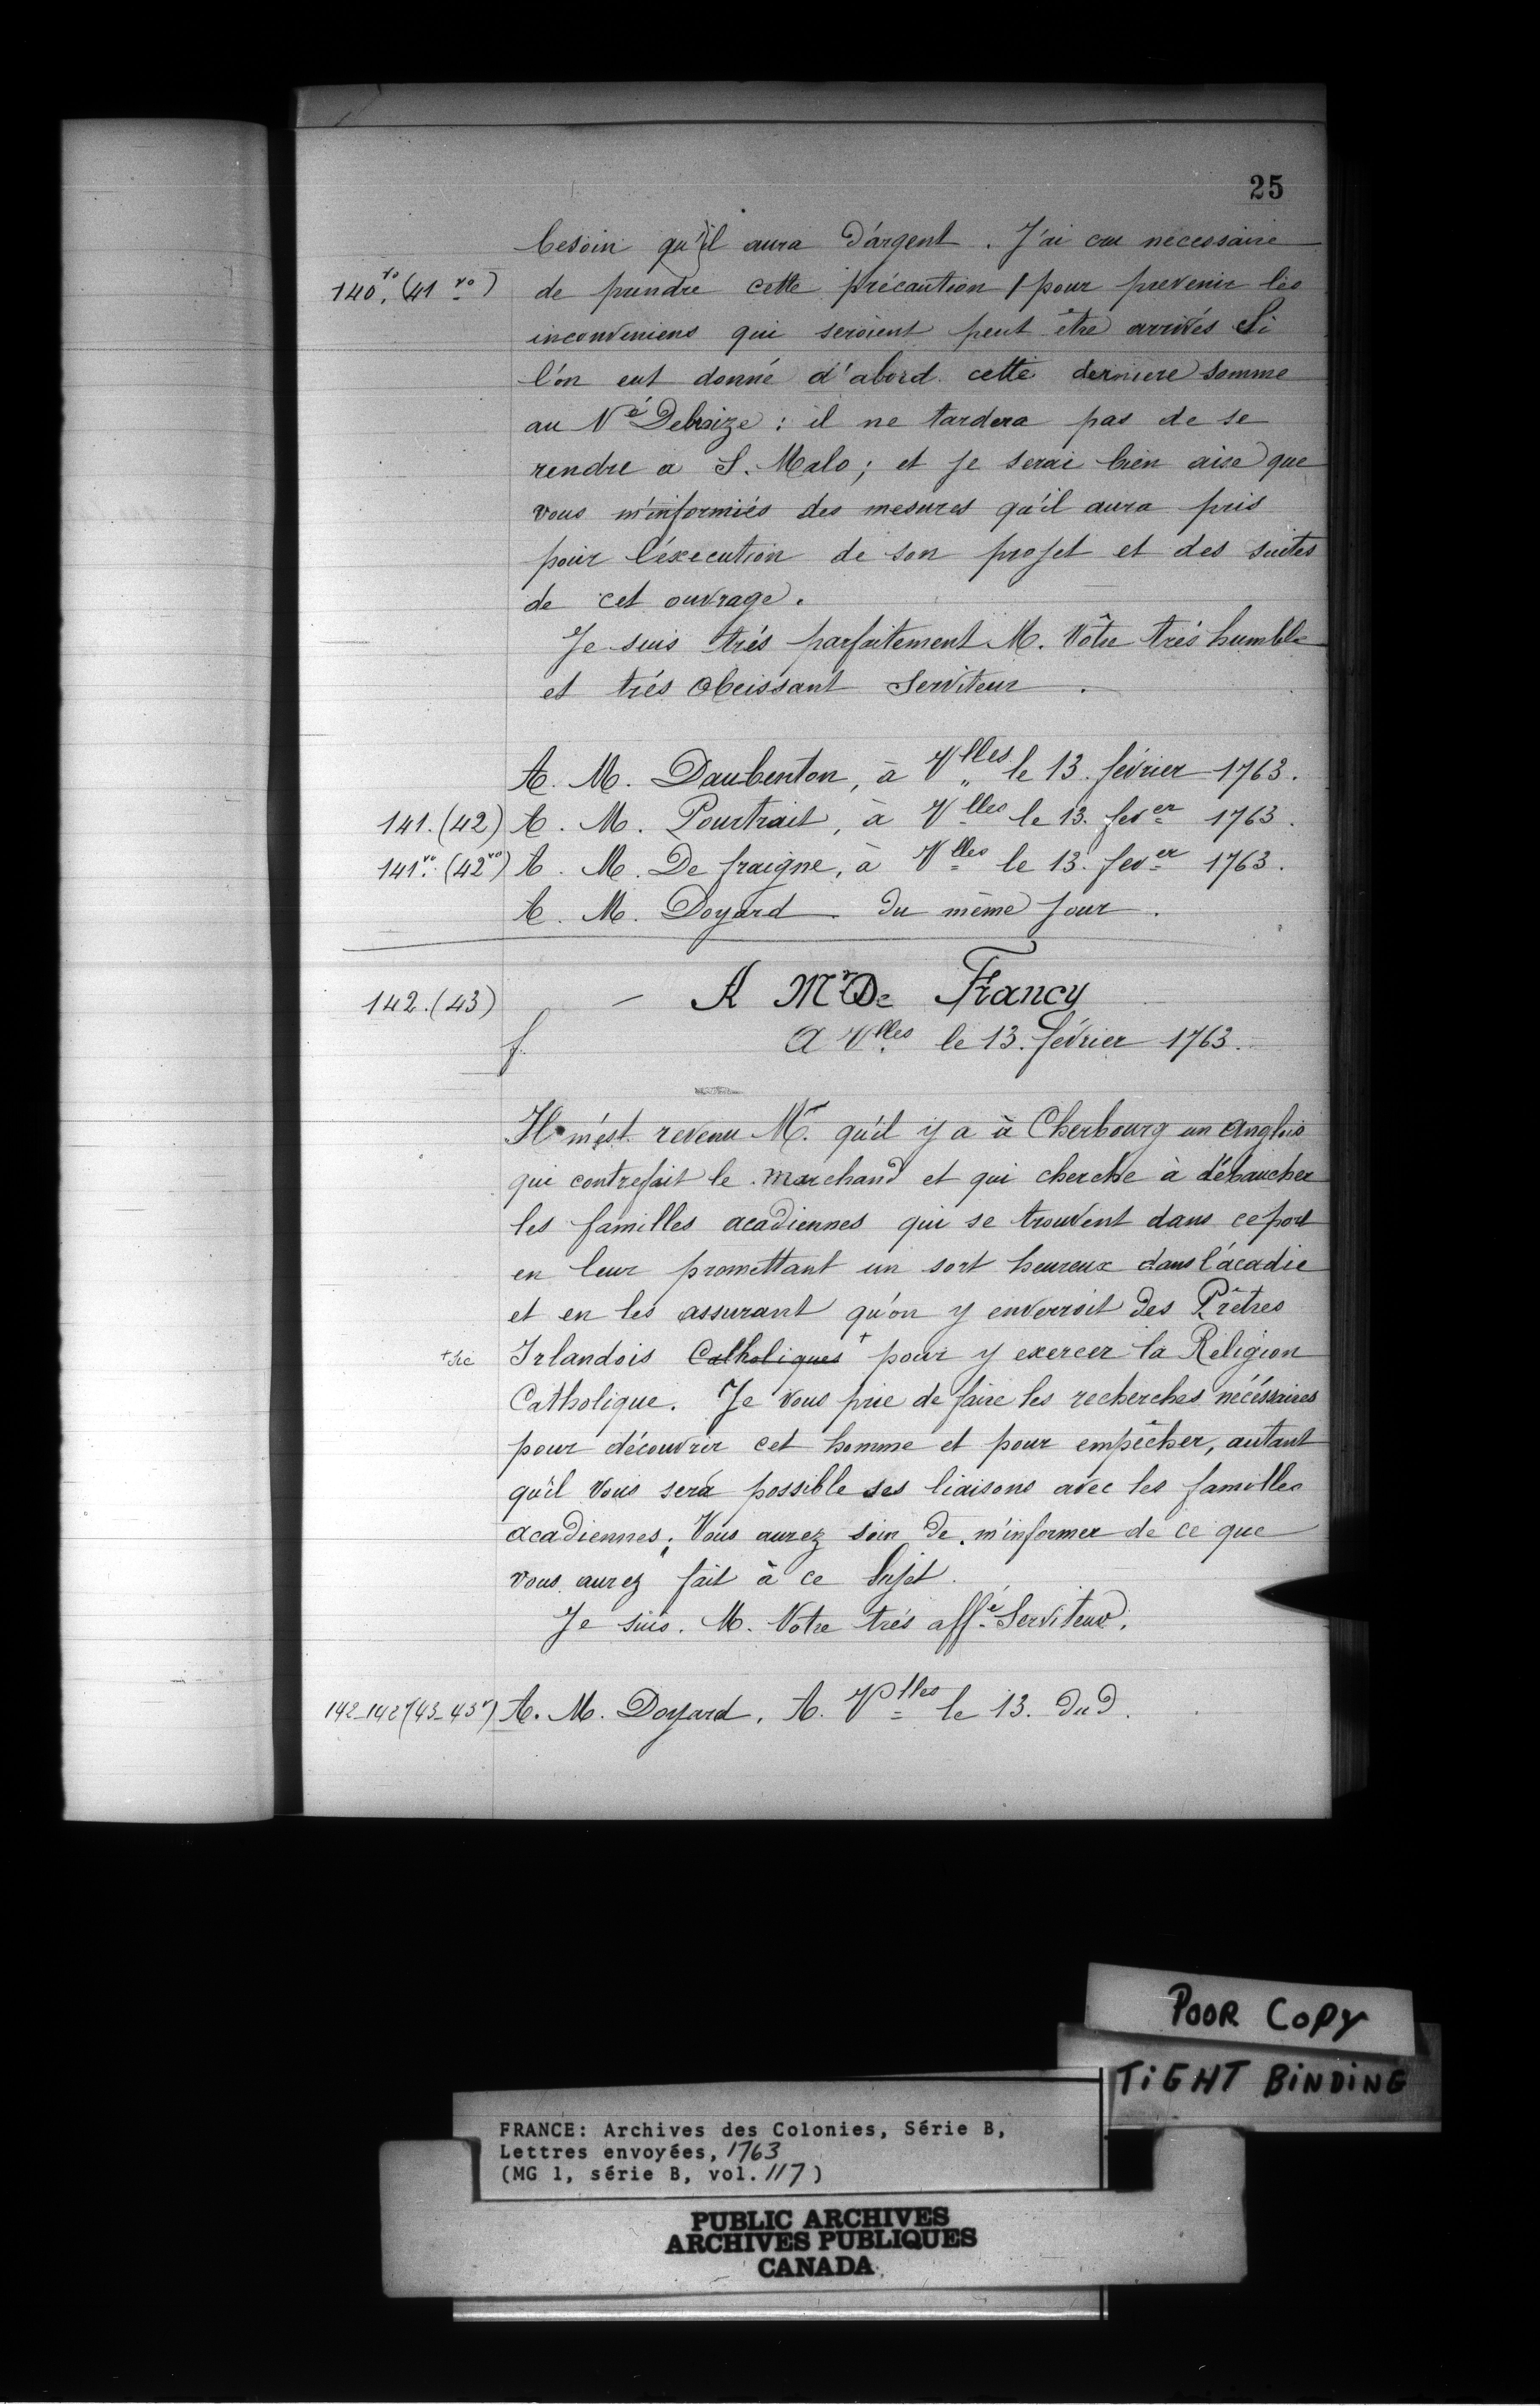 25
besoin qu'il aura d'argent. J'ai cru necessaire
140.vo (41 vo) de prendre cette précaution / pour prevenir les
inconveniens qui seroient peut être arrivés Si
l'on eut donné d'abord cette derniere somme
au Né Debraize : il ne tardera pas de se
rendre a S. Malo ; et je serai bien aise que
vous m'informiés des mesures qu'il aura pris
pour l'éxecution de son projet et des suites
de cet ouvrage.
Je suis trés parfaitement M. Vôtre trés humble
et trés obeissant Serviteur.
A. M. Daubenton, à Vlles le 13. février 1763.
141. (42) A. M. Pourtrait, à Vlles le 13. fever 1763.
141vo. (42vo) A. M. De fraigne, à Vlles le 13. fever 1763.
A. M. Doyard du même jour.
142. (43) - A Mr De Francy
f. A Vlles le 13. février 1763.
Il m'est revenu Mr. qu'il y a à Cherbourg un anglois
qui contrefait le marchand et qui cherche à débaucher
les familles acadiennes qui se trouvent dans ce port
en leur promettant un sort heureux dans l'acadie
et en les assurant qu'on y enverroit des Prêtres
+sic Irlandois Catholiques + pour y exercer la Religion
Catholique. Je vous prie de faire les recherches nécéssaires
pour découvrir cet homme et pour empêcher, autant
qu'il vous sera possible ses liaisons avec les familles
acadiennes ; Vous aurez soin de m'informer de ce que
vous aurez fait à ce Sujet.
Je suis. M. Votre trés affé Serviteur.
142-142v (43-43v) A. M. Doyard. A. Vlles le 13. dud.
POOR COPY
TIGHT BINDING
FRANCE: Archives des Colonies, Série B,
Lettres envoyées, 1763
(MG 1, série B, vol. 117)
PUBLIC ARCHIVES
ARCHIVES PUBLIQUES
CANADA